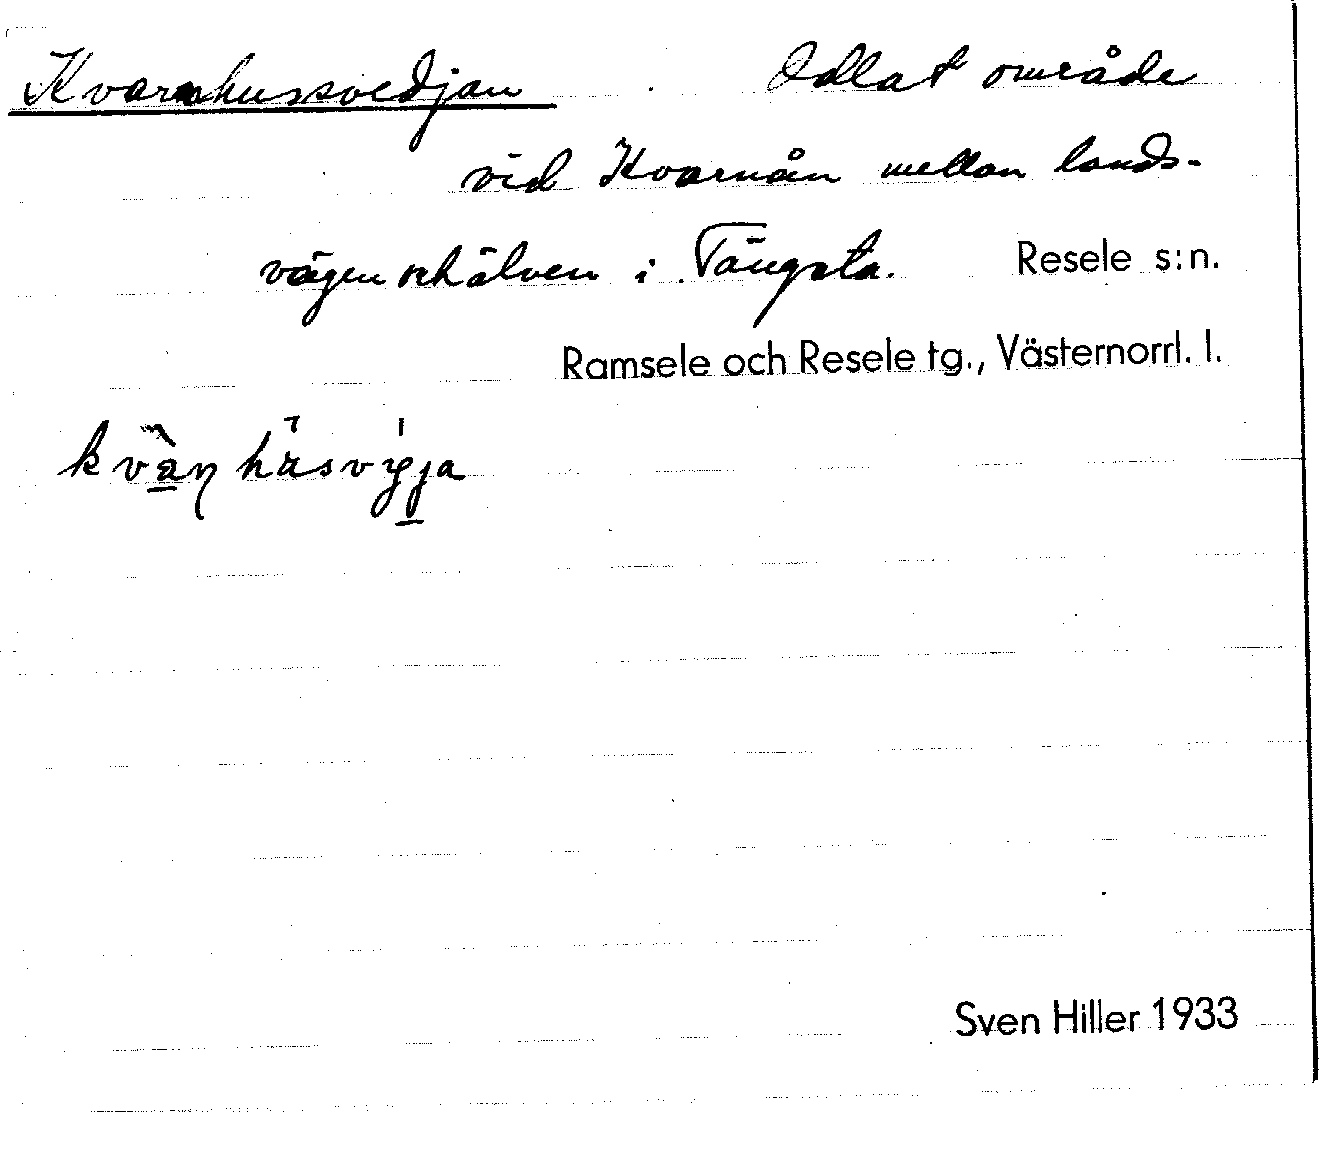 Kvarnhussvedjan Odlat område
vid Kvarnån mellan lands-
vägen och älven i Tängsta. Resele s:n.
Ramsele och Resele tg., Västernorrl. l.
Sven Hiller 1933